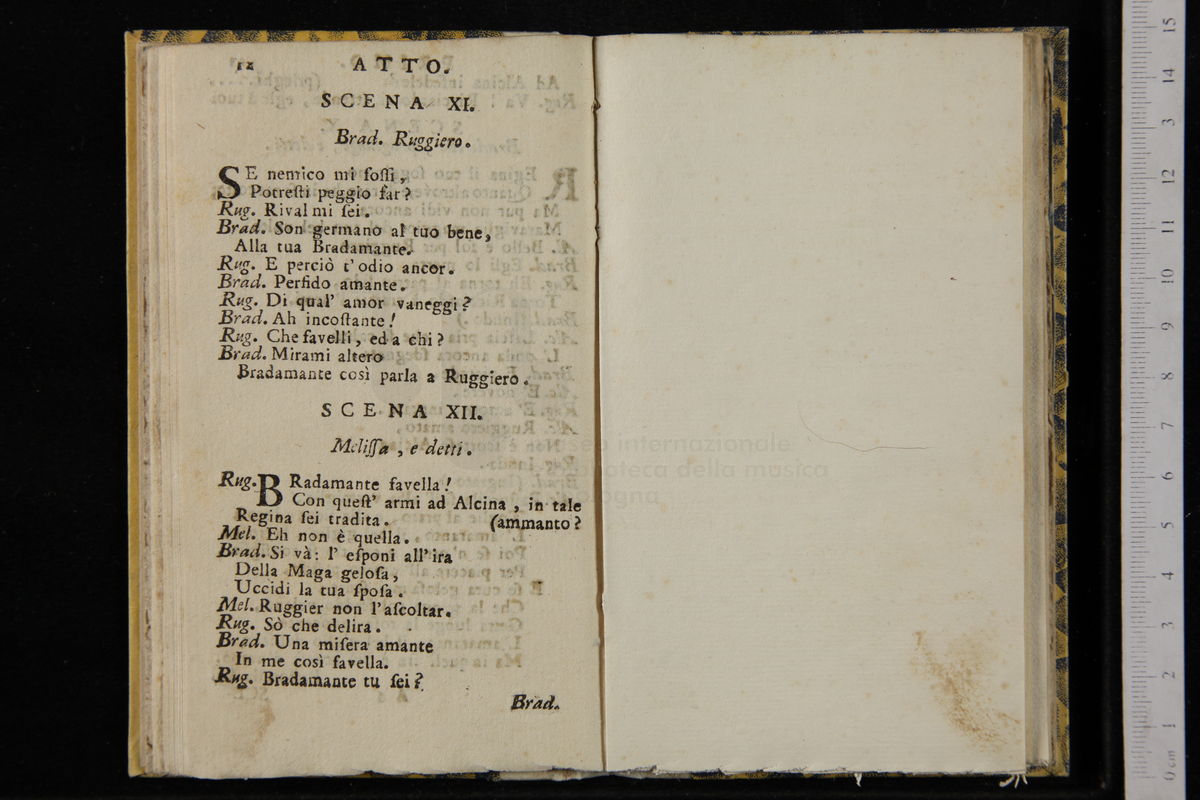 12 ATTO.
SCENA XI.
Brad. Ruggiero.
SE nemico mi foſſi,
Potreſti peggio far?
Rug. Rival mi ſei.
Brad. Son germano al tuo bene,
Alla tua Bradamante.
Rug. E perciò t'odio ancor.
Brad. Perfido amante.
Rug. Di qual' amor vaneggi?
Brad. Ah incoſtante!
Rug. Che favelli, ed a chi?
Brad. Mirami altero
Bradamante così parla a Ruggiero.
SCENA XII.
Meliſſa, e detti.
Rug. BRadamante favella!
Con queſt' armi ad Alcina, in tale
Regina ſei tradita. (ammanto?
Mel. Eh non è quella.
Brad. Si và: l' eſponi all' ira
Della Maga geloſa,
Uccidi la tua ſpoſa.
Mel. Ruggier non l'aſcoltar.
Rug. Sò che delira.
Brad. Una miſera amante
In me così favella.
Rug. Bradamante tu ſei?
Brad.
museo internazionale
biblioteca della musica
bologna
0 cm 1 2 3 4 5 6 7 8 9 10 11 12 13 14 15